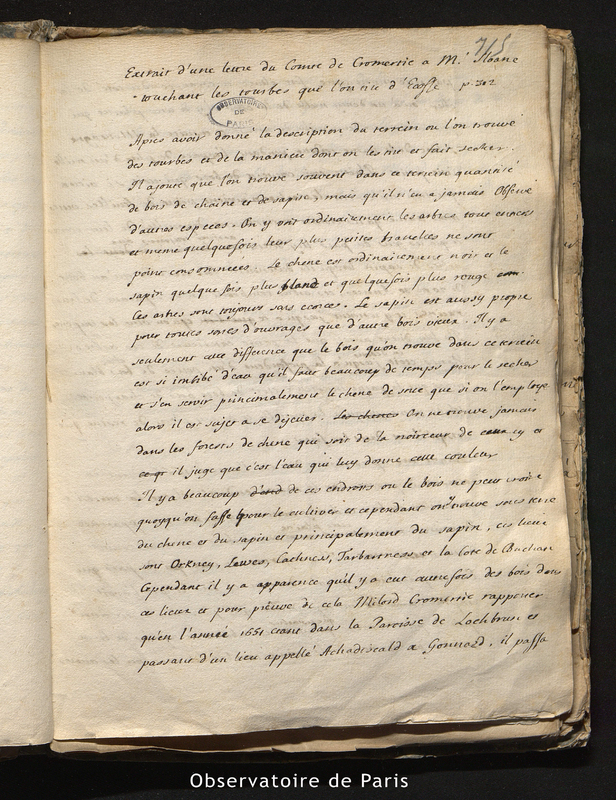 715
Extrait d'une lettre du Comte de Cromertie a Mr. Sloane
touchant les tourbes que l'on tire d'Ecosse p. 302
OBSERVATOIRE
DE
PARIS
Apres avoir donné la description du terrein ou l'on trouve
des tourbes et de la maniere dont on les tire et fait secher.
Il ajoute que l'on trouve souvent dans ce terrein quantité
de bois de chaine et de sapin, mais qu'il n'en a jamais observé
d'autres especes. On y voit ordinairement les arbres tous entiers
et meme quelquefois leur plus petites branches ne sont
point consommées. Le chene est ordinairement noir et le
sapin quelque fois plus bland et quelque fois plus rouge
Ces arbres sont toujours sans ecorces. Le sapin est aussy propre
pour toutes sortes d'ouvrages que d'autre bois vieux. Il y a
seulement cette difference que le bois qu'on trouve dans ce terrein
est si imbibé d'eau qu'il faut beaucoup de temps pour le secher
et s'en servir principalement le chene de sorte que si on l'employe
alors il est sujet a se dejetter. Les chenes On ne trouve jamais
dans les forests de chene qui soit de la noirceur de ceux cy et
il juge que c'est l'eau qui luy donne cette couleur
Il y a beaucoup d'end de ces endroits ou le bois ne peut croitre
quoyqu'on fasse pour le cultiver et cependant on y trouve sous terre
du chene et du sapin et principalement du sapin, ces lieux
sont Orkney, Lewes, Cachness, Tarbartness et la cote de Buchan
Cependant il y a apparence qu'il y a eut autrefois des bois dans
ces lieux et pour preuve de cela Milord Cromertie rapporte
qu'en l'année 1651 etant dans la Paroisse de Lochbrun et
passant d'un lieu appellé Achadiscald a Gonnard, il passa
Observatoire de Paris